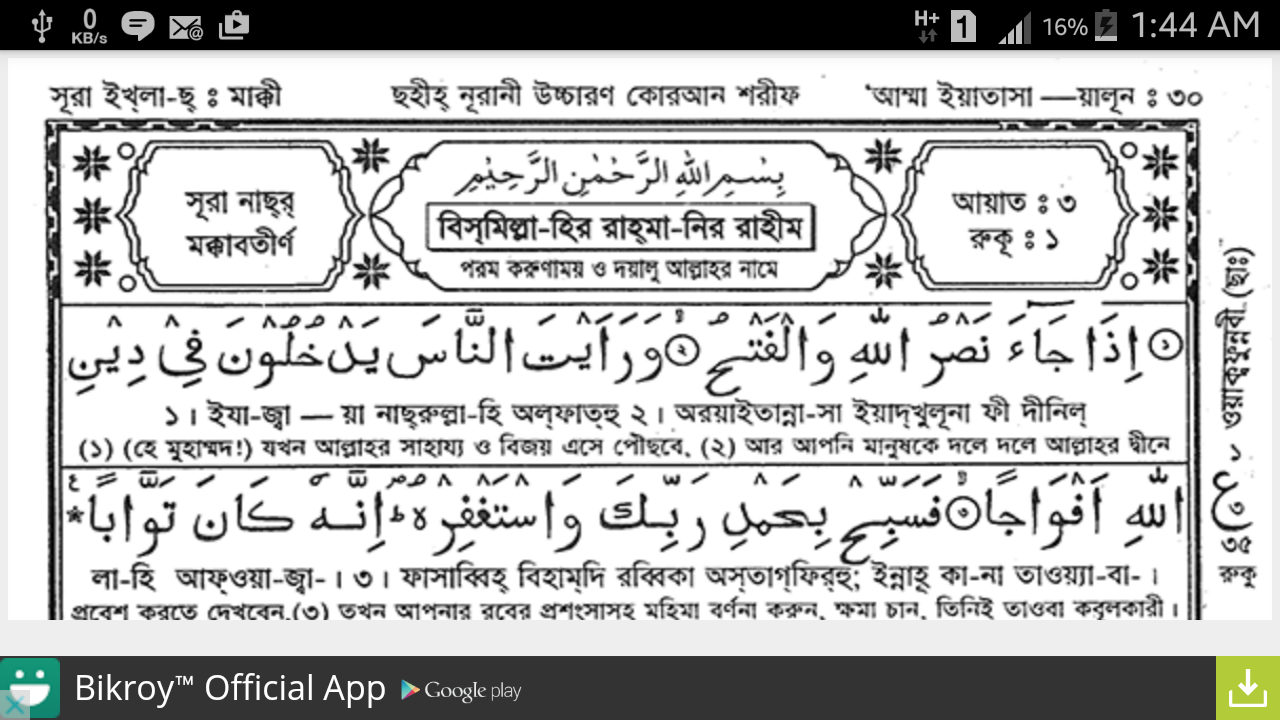 0 KB/s H+ 1 16% 1:44 AM
সূরা ইখ্‌লা-ছ্ ঃ মাক্কী ছহীহ্ নূরানী উচ্চারণ কোরআন শরীফ 'আম্মা ইয়াতাসা —য়ালূন ঃ ৩০
بِسْمِ اللهِ الرَّحْمٰنِ الرَّحِيْمِ
সূরা নাছ্‌র্
মক্কাবতীর্ণ
বিস্‌মিল্লা-হির রাহ্‌মা-নির রাহীম
পরম করুণাময় ও দয়ালু আল্লাহর নামে
আয়াত ঃ ৩
রুকূ ঃ ১
① اِذَا جَآءَ نَصْرُ اللّٰهِ وَالْفَتْحُ ② وَرَاَيْتَ النَّاسَ يَدْخُلُوْنَ فِيْ دِيْنِ
১। ইযা-জ্বা — য়া নাছ্‌রুল্লা-হি অল্‌ফাত্‌হু ২। অরয়াইতান্না-সা ইয়াদ্‌খুলূনা ফী দীনিল্
(১) (হে মুহাম্মদ!) যখন আল্লাহর সাহায্য ও বিজয় এসে পৌছবে, (২) আর আপনি মানুষকে দলে দলে আল্লাহর দ্বীনে
اللّٰهِ اَفْوَاجًا ③ فَسَبِّحْ بِحَمْدِ رَبِّكَ وَاسْتَغْفِرْهُ ط اِنَّهٗ كَانَ تَوَّابًا *
লা-হি আফ্‌ওয়া-জ্বা-। ৩। ফাসাব্বিহ্ বিহাম্‌দি রব্বিকা অস্‌তাগ্‌ফির্‌হু; ইন্নাহূ কা-না তাওয়্যা-বা-।
প্রবেশ করতে দেখবেন,(৩) তখন আপনার রবের প্রশংসাসহ মহিমা বর্ণনা করুন, ক্ষমা চান, তিনিই তাওবা কবুলকারী।
ওয়াক্‌ফুন্নবী (ছাঃ)
১
ع
৩
৩৫
রুকূ
Bikroy™ Official App Google play